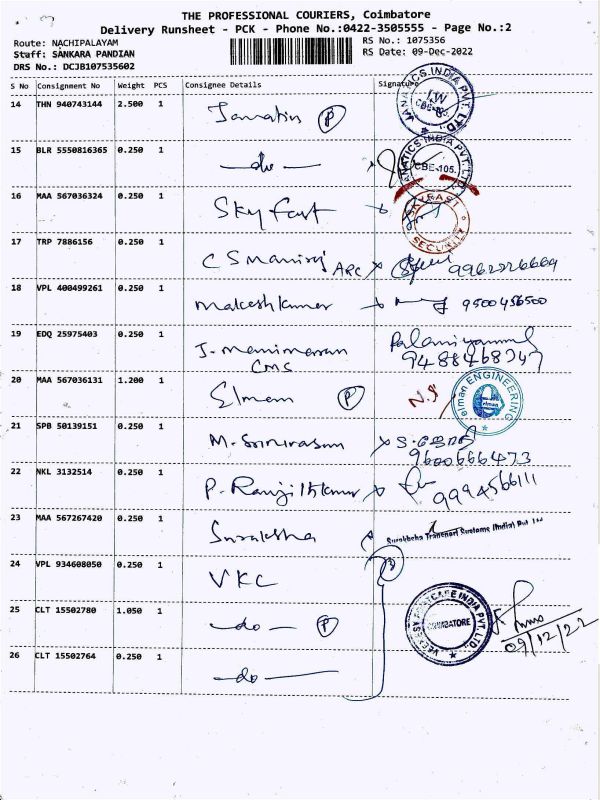 THE PROFESSIONAL COURIERS, Coimbatore
Delivery Runsheet - PCK - Phone No.:0422-3505555 - Page No.:2
Route: NACHIPALAYAM
RS No.: 1075356
Staff: SANKARA PANDIAN
RS Date: 09-Dec-2022
DRS No.: DCJB107535602
S No Consignment No Weight PCS Consignee Details Signature
14 THN 940743144 2.500 1 P
15 BLR 5550816365 0.250 1 -do- CBE-105.
16 MAA 567036324 0.250 1 Sky fast SKYFAST SECURITY
17 TRP 7886156 0.250 1 C S Maniraj ARC X
18 VPL 400499261 0.250 1 Makeshkumar 9500456500
19 EDQ 25975403 0.250 1 J. Manimaran
CMS
20 MAA 567036131 1.200 1 Elmen P elman ENGINEERING
21 SPB 50139151 0.250 1 M. Srinivasan X
9600666473
22 NKL 3132514 0.250 1 P. Ranjithkumar
23 MAA 567267420 0.250 1 Suraksha Surakbcha Transport Systems (India) Pvt Ltd
24 VPL 934608050 0.250 1 VKC
25 CLT 15502780 1.050 1 -do- P COIMBATORE
09/12/22
26 CLT 15502764 0.250 1 -do-